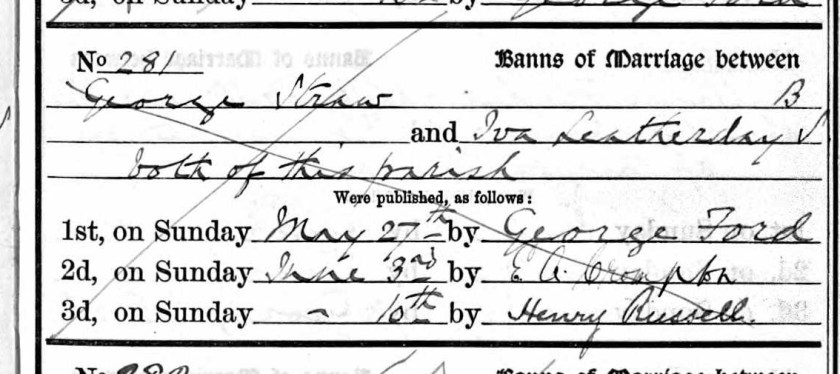 3d, on Sunday 10th by George Ford
No 281 Banns of Marriage between
George Straw B
and Iva Leatherday S
both of this parish
Were published, as follows:
1st, on Sunday May 27th by George Ford
2d, on Sunday June 3rd by E. A. Crompton
3d, on Sunday - 10th by Henry Russell.
No 282 Banns of Marriage between